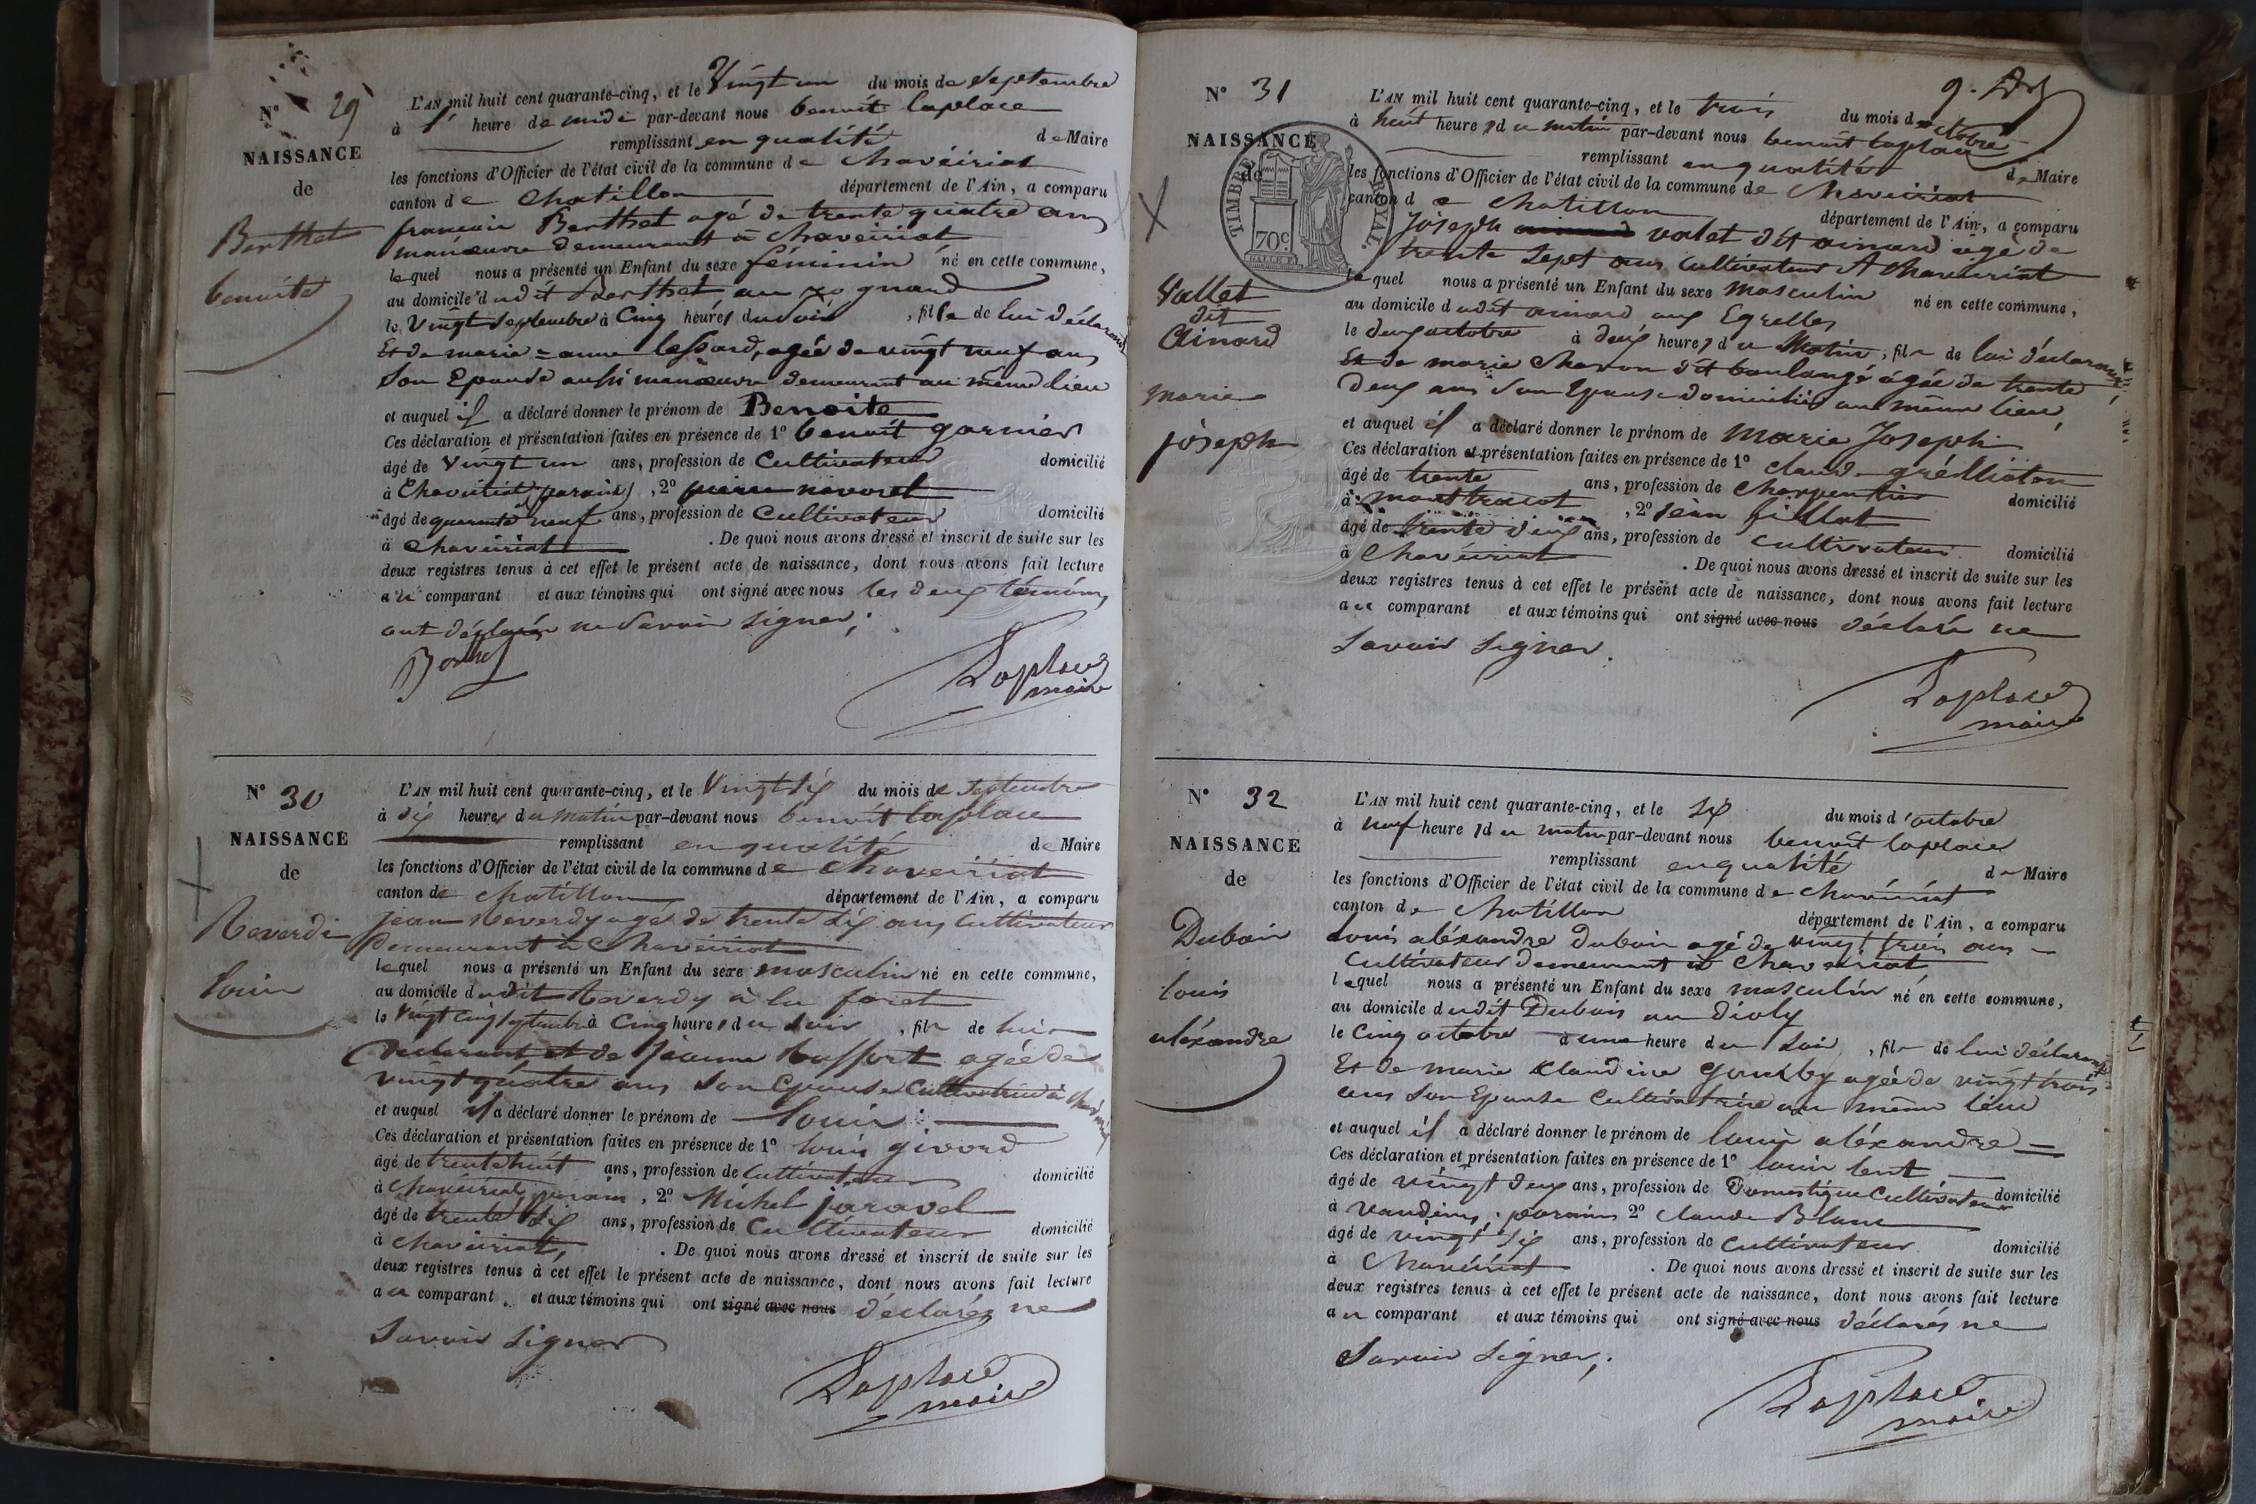 N° 29
NAISSANCE
de
Berthet
benoite
L'AN mil huit cent quarante-cinq, et le Vingt un du mois de Septembre
à 1 heure de midi par-devant nous benoit laplace
remplissant en qualité de Maire
les fonctions d'Officier de l'état civil de la commune de chavéiriat
canton de Chatillon département de l'Ain, a comparu
francois Berthet agé de trente quatre ans
manœuvre demeurant à chaveiriat
lequel nous a présenté un Enfant du sexe féminin né en cette commune,
au domicile dudit Berthet au
le Vingt Septembre à Cinq heures du soir, fille de lui déclarant
Et de marie = anne lessard, agée de vingt neuf ans
Son Epouse aussi manœuvre demeurant au même lieu
et auquel il a déclaré donner le prénom de Benoite
Ces déclaration et présentation faites en présence de 1° benoit garnier
âgé de Vingt un ans, profession de Cultivateur domicilié
à Chaveiriat (parain), 2° pierre navoret
âgé de quarante neuf ans, profession de Cultivateur domicilié
à chaveiriat. De quoi nous avons dressé et inscrit de suite sur les
deux registres tenus à cet effet le présent acte de naissance, dont nous avons fait lecture
au comparant et aux témoins qui ont signé avec nous les deux témoins
ont déclarés ne Savoir Signer;
Laplace
maire
N° 30
NAISSANCE
de
Reverdi
louis
L'AN mil huit cent quarante-cinq, et le Vingt Six du mois de Septembre
à dix heures du matin par-devant nous benoit laplace
remplissant en qualité de Maire
les fonctions d'Officier de l'état civil de la commune de chaveiriat
canton de chatillon département de l'Ain, a comparu
jean Reverdy agé de trente Six ans Cultivateur
Demeurant à Chaveiriat
lequel nous a présenté un Enfant du sexe masculin né en cette commune,
au domicile dudit Reverdy à la foret
le Vingt Cinq septembre à Cinq heures du Soir, fils de lui
Déclarant et de Jeanne buffort agée de
vingt quatre ans Son Epouse Cultivatrice à
et auquel il a déclaré donner le prénom de louis
Ces déclaration et présentation faites en présence de 1° louis givord
âgé de trente huit ans, profession de Cultivateur domicilié
à Chaveiriat, parain, 2° Michel jaravel
âgé de trente Six ans, profession de Cultivateur domicilié
à chaveiriat, . De quoi nous avons dressé et inscrit de suite sur les
deux registres tenus à cet effet le présent acte de naissance, dont nous avons fait lecture
au comparant et aux témoins qui ont signé avec nous déclarés ne
Savoir Signer
Laplace
maire
9.
N° 31
NAISSANCE
de
TIMBRE ROYAL
70c
Vallet
dit
Ainard
marie
joseph
L'AN mil huit cent quarante-cinq, et le trois du mois d'octobre
à huit heures du matin par-devant nous benoit laplace
remplissant en qualité de Maire
les fonctions d'Officier de l'état civil de la commune de Chaveiriat
canton de Chatillon département de l'Ain, a comparu
Joseph valet dit ainard agé de
trente Sept ans Cultivateur A chaveiriat
lequel nous a présenté un Enfant du sexe masculin né en cette commune,
au domicile dudit ainard aux Egrelles
le deux octobre à deux heures du Matin, fils de lui déclarant
Et de marie Charon dit boulangé agée de trente
Deux ans Son Epouse domiciliée au même lieu,
et auquel il a déclaré donner le prénom de Marie Joseph
Ces déclaration et présentation faites en présence de 1° claude
âgé de trente ans, profession de Charpentier domicilié
à montracol, 2° jean fillot
âgé de trente deux ans, profession de cultivateur domicilié
à Chaveiriat. De quoi nous avons dressé et inscrit de suite sur les
deux registres tenus à cet effet le présent acte de naissance, dont nous avons fait lecture
au comparant et aux témoins qui ont signé avec nous déclaré ne
Savoir Signer.
Laplace
maire
N° 32
NAISSANCE
de
Dubois
louis
aléxandre
L'AN mil huit cent quarante-cinq, et le Six du mois d'octobre
à neuf heures du matin par-devant nous benoit laplace
remplissant en qualité de Maire
les fonctions d'Officier de l'état civil de la commune de chaveiriat
canton de Chatillon département de l'Ain, a comparu
Louis aléxandre Dubois agé de vingt trois ans
Cultivateur demeurant à Chaveiriat
lequel nous a présenté un Enfant du sexe masculin né en cette commune,
au domicile dudit Dubois au
le Cinq octobre à une heure du Soir, fils de lui déclarant
Et de marie Claudine agée de vingt trois
ans Son Epouse Cultivatrice au même lieu
et auquel il a déclaré donner le prénom de louis aléxandre
Ces déclaration et présentation faites en présence de 1° louis lent
âgé de vingt deux ans, profession de Domestique Cultivateur domicilié
à vandeins, parains 2° claude Blanc
âgé de vingt Six ans, profession de Cultivateur domicilié
à Chaveiriat. De quoi nous avons dressé et inscrit de suite sur les
deux registres tenus à cet effet le présent acte de naissance, dont nous avons fait lecture
au comparant et aux témoins qui ont signé avec nous déclarés ne
Savoir Signer;
Laplace
maire